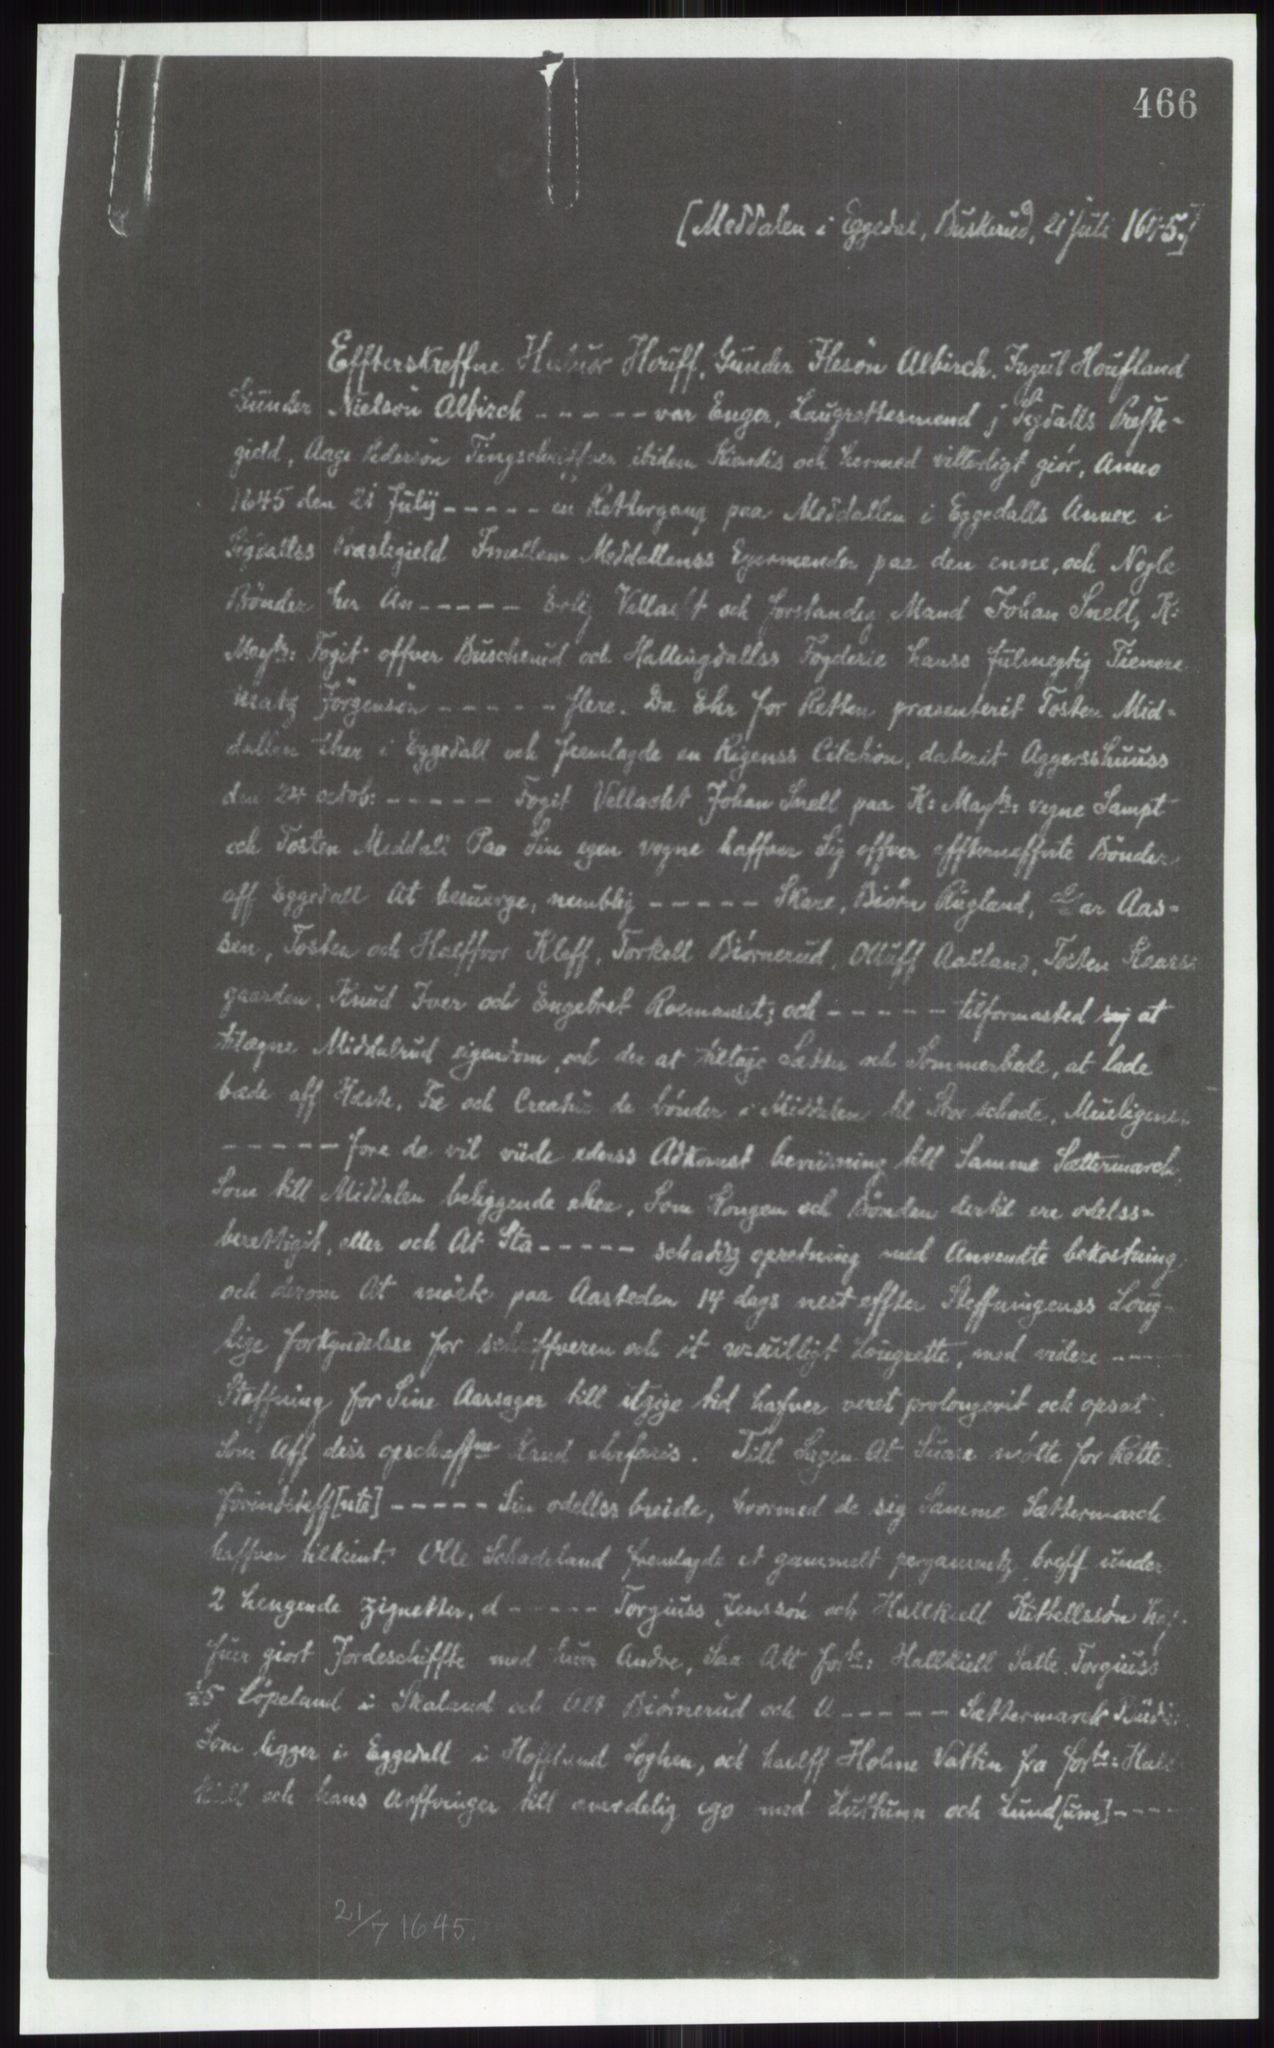 466
[Meddalen i Eggedal, Buskerud, 21 juli 1645.]
Effterskreffne Houff, Gunder Iflesön Albirch. Ingul Houfland
Gunder Nielsön Albirch - - - - - var Enger, Laugrettesmend j Sigdalls Preste-
gield, Aage Pedersön Tingschriffver ibidem Kiendis och hermed vitterligt giör, Anno
1645 den 21 Julij - - - - - en Rettergang paa Meddallen i Eggedalls Annex i
Sigdallss Prestegield Imellem Meddallenss Eyermender paa den enne, och Nogle
Bönder her An - - - - - Erlig Vellacht och forstandig Mand Johan Snell, K:
Maytz: Fogit offver Buscherud och Hallingdallss Fogderie hanss fulmegtig Tienere
Matz Jörgensön - - - - - flere. Da Ehr for Retten præsenterit Tosten Mid-
dallen ther i Eggedall och fremlagde en Rigenss Citation, daterit Aggersshuuss
den 24 octob: - - - - - Fogit Vellacht Johan Snell paa K: Maytz: vegne Sampt
och Tosten Meddall Paa Sin egen vegne haffver Sig offver effterneffnte Bönder
aff Eggedall At besuerge, nemblig - - - - - Skare, Biörn Rugland, ar Aas-
sen, Tosten och Halffvor Kleff, Torkell Biörnerud, Olluff Aasland, Tosten
gaarden, Knud Iver och Engebret Roemanset; och - - - - - tilformasted sig at
tilægne Middalrud eigendom, och der at tiltage Sætter och Sommerbede, at lade
bede aff Heste, Fæ och Creatur de bönder i Middalen til Stor schade, Mueligens
- - - - - fore de vil vide ederss Adkomst beviisning till Samme Sættermarch
Som till Middalen beliggende ehre, Som Kongen och Bönden dertil ere odelss-
berettigit, eller och At Sta - - - - - schadiss opretning med Anvendte bekostning
och derom At möete paa Aasteden 14 dags nest effter Steffningenss Loug-
lige forkyndelsse for schriffveren och it u-uilligt Lougrette, med videre - - -
Steffning for Sine Aarsager till itzige tid hafver veret prolongerit och opsat
Som Aff diss opschreffne Knud erfaris. Till Sagen At Suare mötte for Rette
Forindsteff[nte] - - - - - Sin odellss breide, hvormed de sig Samme Sættermarch
haffver tilkient. Olle Schadeland fremlagde et gammelt pergamentz breff under
2 hengende zignetter, d - - - - - Torgiuss Jenssön och Hallkiell Kittellssön haf-
fuer giort Jordeschiffte med huer Andre, Saa Att forte: Hallkiell Satte Torgiuss
25 Löpeland i Skaland och Alt Biörnerud och A - - - - - Sættermarck
Som ligger i Eggedall i Hoffland Soghen, och halff Holme Vattin fra forte: Hall-
kiell och hans Arffvinger till averdelig ego med Luttumn och Lund[um] - - - -
21/7 1645.